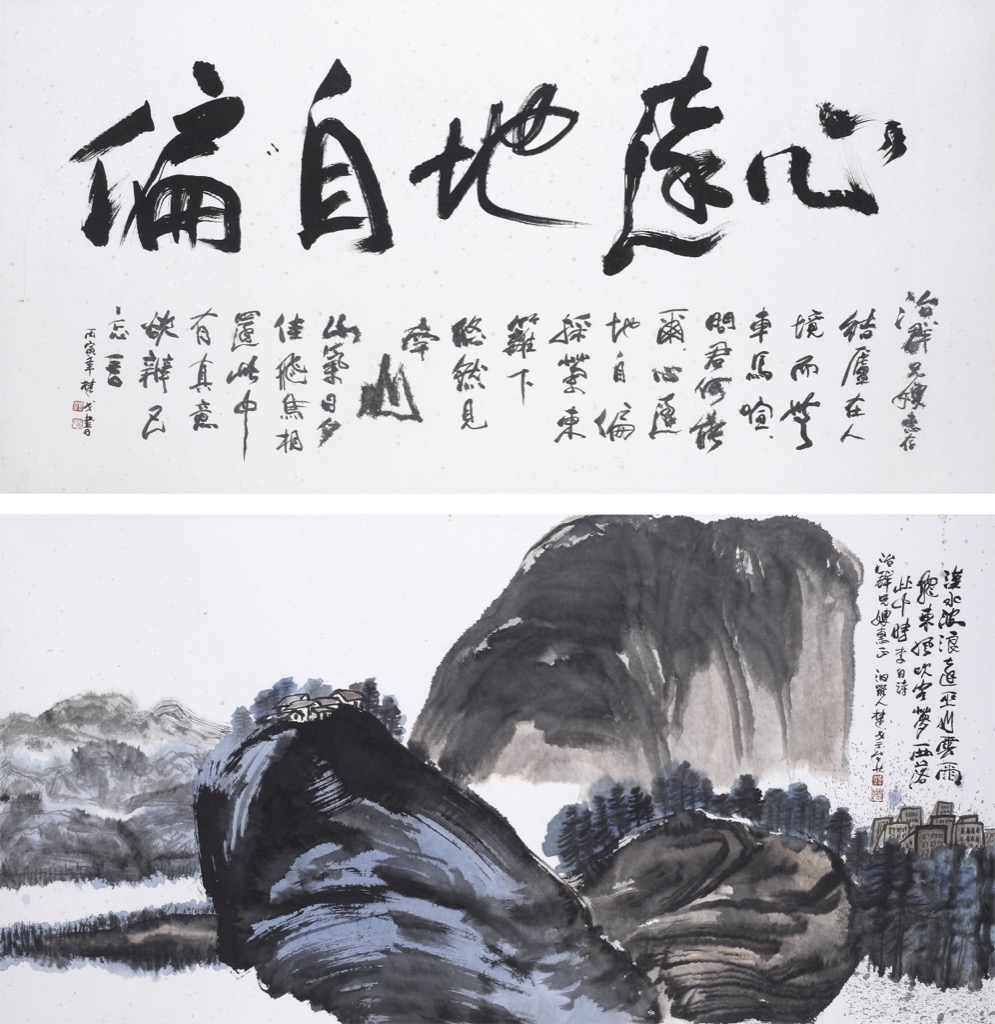 心遠地自偏
治群兄嫂惠存
結廬在人
境而無
車馬喧
問君何能
爾心遠
地自偏
採菊東
籬下
悠然見
南山
山氣日夕
佳飛鳥相
還此中
有真意
欲辨已
忘言
丙寅年楚戈書
漢水波浪遠巫山雲雨
飛東風吹客夢西落
此中時李白詩
治群兄嫂惠正 汨羅人楚戈